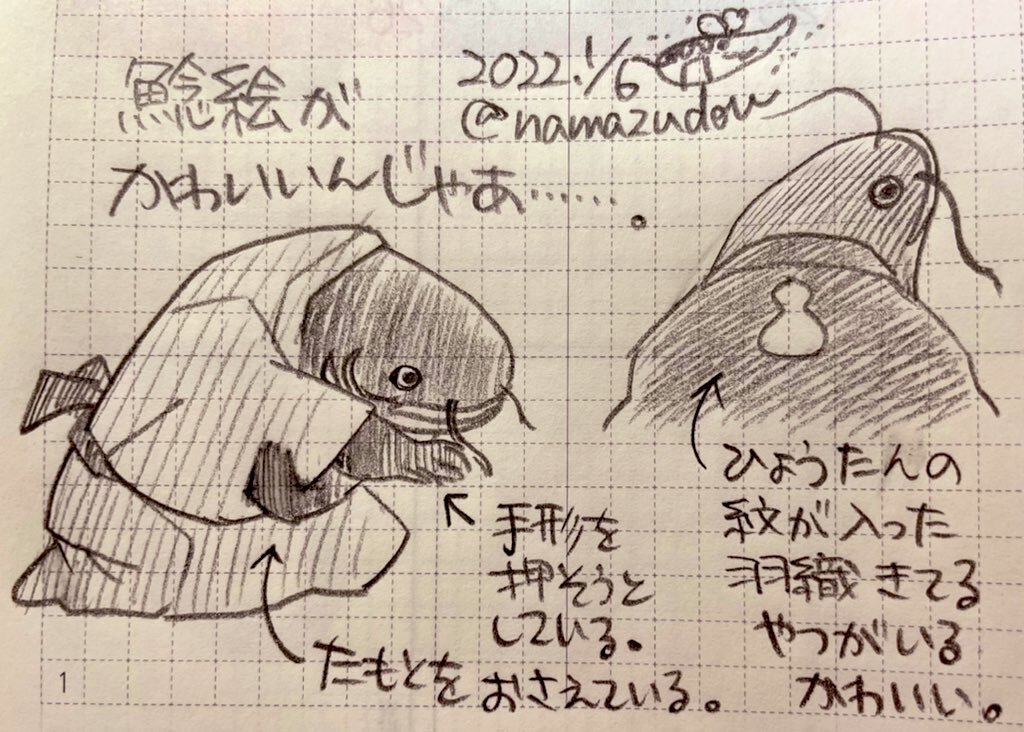 鯰絵が
かわいいんじゃあ……。
2022.1/6
@namazudou
手形を
押そうと
している。
たもとをおさえている。
ひょうたんの
紋が入った
羽織きてる
やつがいる
かわいい。
1